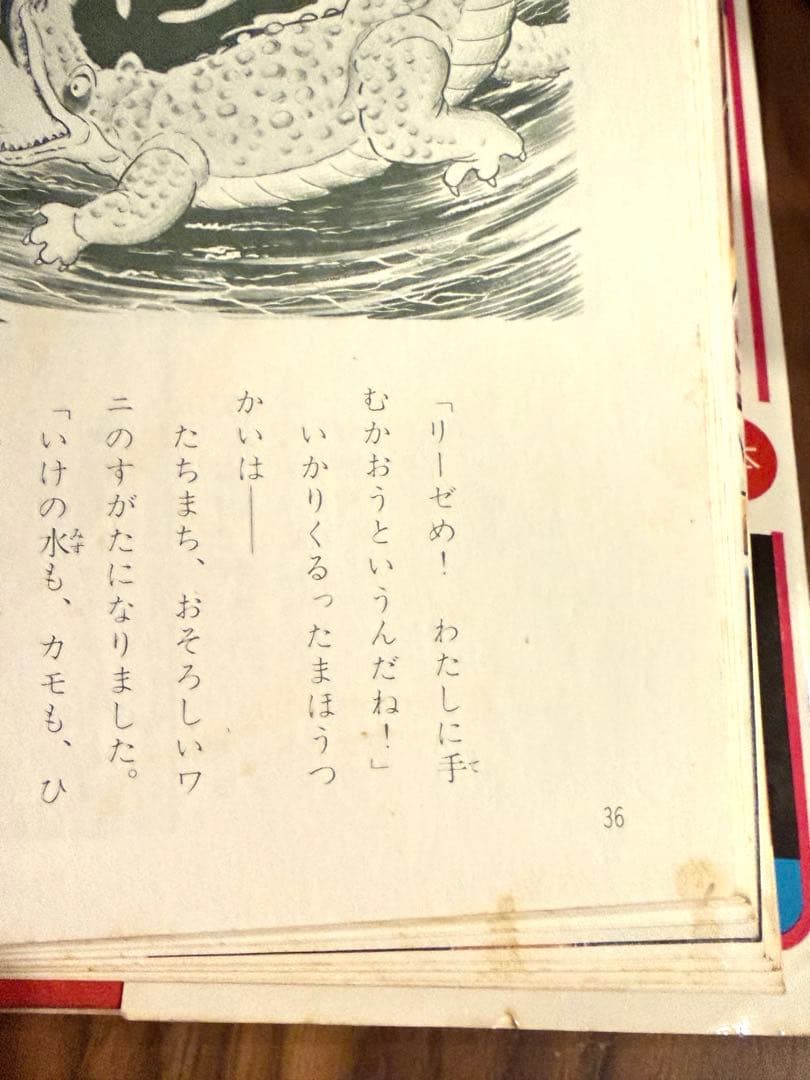 「リーゼめ！　わたしに手て
むかおうというんだね！」
　いかりくるったまほうつ
かいは――
　たちまち、おそろしいワ
ニのすがたになりました。
「いけの水みずも、カモも、ひ
36